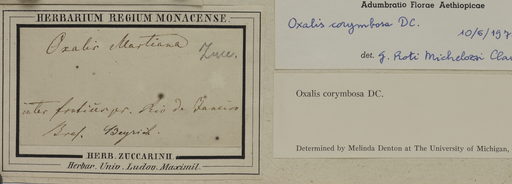 HERBARIUM REGIUM MONACENSE.
Oxalis Martiana
Zucc.
inter frutices pr. Rio de Janeiro
Bras. Beyrich.
HERB. ZUCCARINII
Herbar. Univ. Ludov. Maximil.
Adumbratio Florae Aethiopicae
Oxalis corymbosa DC.
10/6/197
det. G. Roti Michelozzi Clav
Oxalis corymbosa DC.
Determined by Melinda Denton at The University of Michigan,